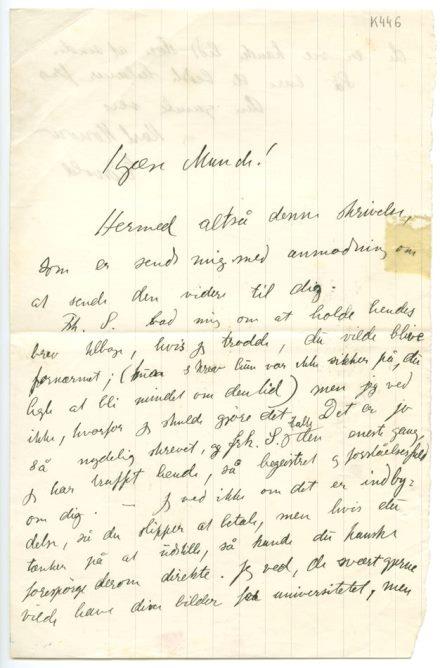 K446
Kjære Munch!
Hermed altså denne skrivelse,
som er sendt mig med anmodning om
at sende den videre til dig.
Frk. S. bad mig om at holde hendes
brev tilbage, hvis jeg trodde, du vilde blive
fornærmet; (hun skrev hun var ikke sikker på, du
likte at bli mindet om den tid) men jeg ved
ikke, hvorfor jeg skulde gjøre det. Det er jo
så nydelig skrevet, og frk. S. talte den eneste gang,
jeg har truffet hende, så begeistret og forståelsesfuldt
om dig. — Jeg ved ikke om det er indby-
delse, så du slipper at betale, men hvis du
tænker på at udstille, så kunde du kanske
forespørge derom direkte. Jeg ved, de svært gjerne
vilde have dine bilder for universitetet, men